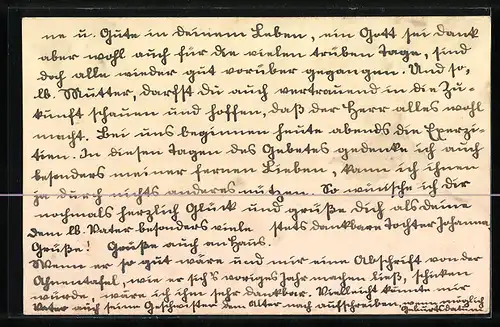 ne u. Gute in deinem Leben, ein Gott sei dank
aber wohl auch für die vielen trüben Tage, sind
doch alle wieder gut vorüber gegangen. Und so,
lb. Mutter, darfst du auch vertrauend in die Zu-
kunft schauen und hoffen, daß der Herr alles wohl
macht. Bei uns beginnen heute abends die Exerzi-
tien. In diesen Tagen des Gebetes gedenke ich auch
besonders meiner fernen Lieben, kann ich ihnen
ja durch nichts anderes nützen. So wünsche ich dir
nochmals herzlich Glück und grüße dich als deine
dem lb. Vater besonders viele stets dankbare Tochter Johanna.
Grüße! Grüße auch an Hans.
Wenn er so gut wäre und mir eine Abschrift von der
Ahnentafel, wie er sich's voriges Jahr machen ließ, schicken
würde, wäre ich ihm sehr dankbar. Vielleicht könnte mir
Vater auch seine Geschwister dem Alter nach aufschreiben, wenn möglich
Geburtsdatum